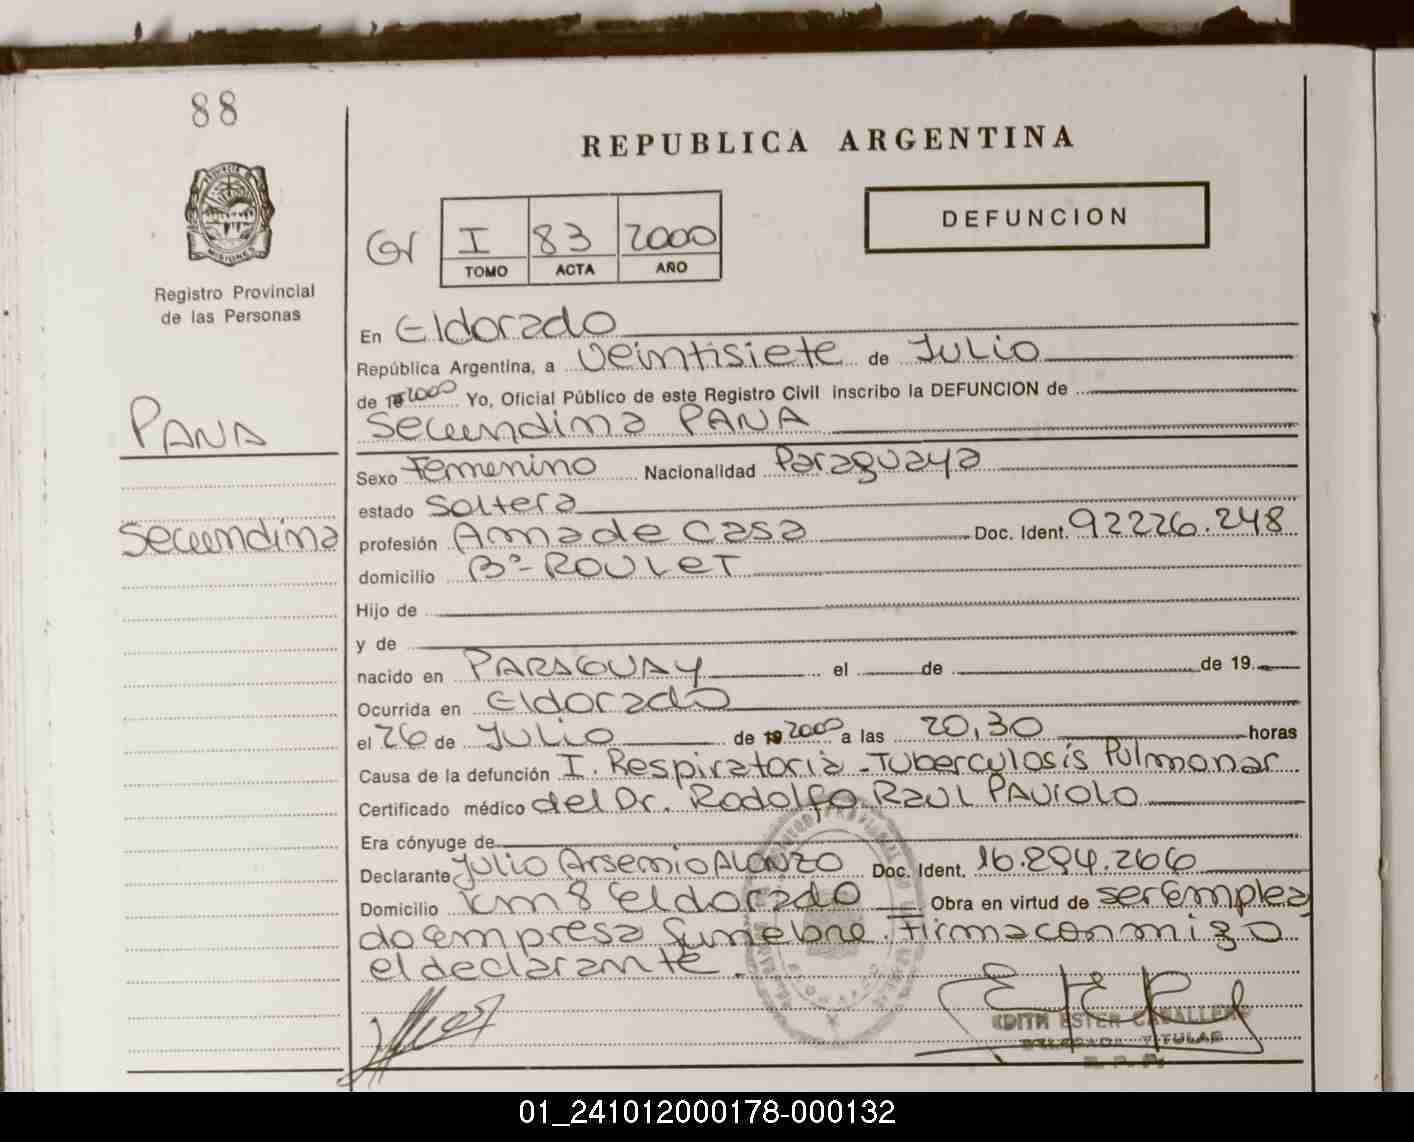 88
REPUBLICA ARGENTINA
DEFUNCION
I 83 2000
TOMO ACTA AÑO
Registro Provincial
de las Personas
PANA
Secundina
En Eldorado
República Argentina, a Veintisiete de Julio
de 2000 Yo, Oficial Público de este Registro Civil inscribo la DEFUNCION de
Secundina PANA
Sexo Femenino Nacionalidad Paraguaya
estado Soltera
profesión Ama de Casa Doc. Ident. 92226.248
domicilio Bº- ROULET
Hijo de
y de
nacido en PARAGUAY el de de 19
Ocurrida en Eldorado
el 26 de JULIO de 2000 a las 20,30 horas
Causa de la defunción I. Respiratoria - Tuberculosis Pulmonar
Certificado médico del Dr. Rodolfo Raul PAVIOLO
Era cónyuge de
Declarante Julio Arsenio ALONZO Doc. Ident. 16.294.266
Domicilio Km 8 Eldorado Obra en virtud de ser emplea
do empresa funebre. Firma con migo
el declarante.
EDITH ESTER CABALLERO
DELEGADA TITULAR
R. P. P.
01_241012000178-000132